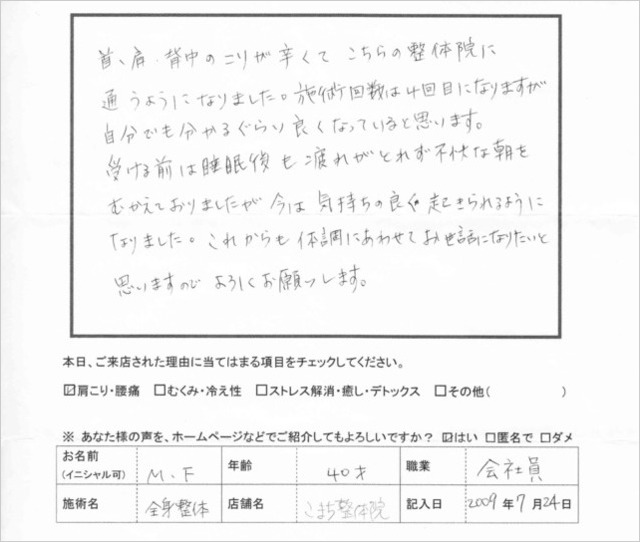 首、肩、背中のコリが辛くて こちらの整体院に
通うようになりました。施術回数は4回目になりますが
自分でも分かるぐらい良くなっていると思います。
受ける前は睡眠後も疲れがとれず不快な朝を
むかえておりましたが今は気持ちの良く起きられるように
なりました。これからも体調にあわせてお世話になりたいと
思いますので よろしくお願いします。
本日、ご来店された理由に当てはまる項目をチェックしてください。
☑肩こり・腰痛 □むくみ・冷え性 □ストレス解消・癒し・デトックス □その他( )
※ あなた様の声を、ホームページなどでご紹介してもよろしいですか？ ☑はい □匿名で □ダメ
お名前 (イニシャル可) M.F 年齢 40才 職業 会社員
施術名 全身整体 店舗名 こまち整体院 記入日 2009年7月24日